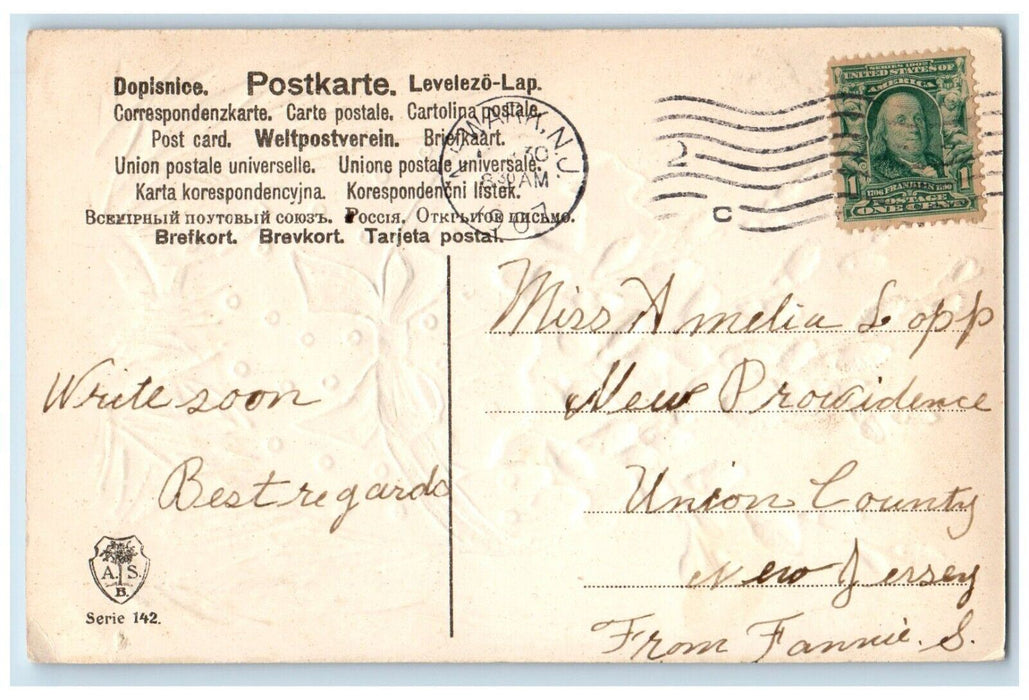 Dopisnice. Postkarte. Levelezö-Lap.
Correspondenzkarte. Carte postale. Cartolina postale.
Post card. Weltpostverein. Briefkaart.
Union postale universelle. Unione postale universale.
Karta korespondencyjna. Korespondenční lístek.
Всемірный поутовый союзъ. Россія. Открытое письмо.
Brefkort. Brevkort. Tarjeta postal.
N.J.
30
8 30 AM
07
2
C
SERIES 1902
UNITED STATES OF
AMERICA
1 1706 FRANKLIN 1790 1
POSTAGE
ONE CENT
Miss Amelia Lopp
New Providence
Union County
New Jersey
From Fannie. S.
Write soon
Best regards
A. S.
B.
Serie 142.